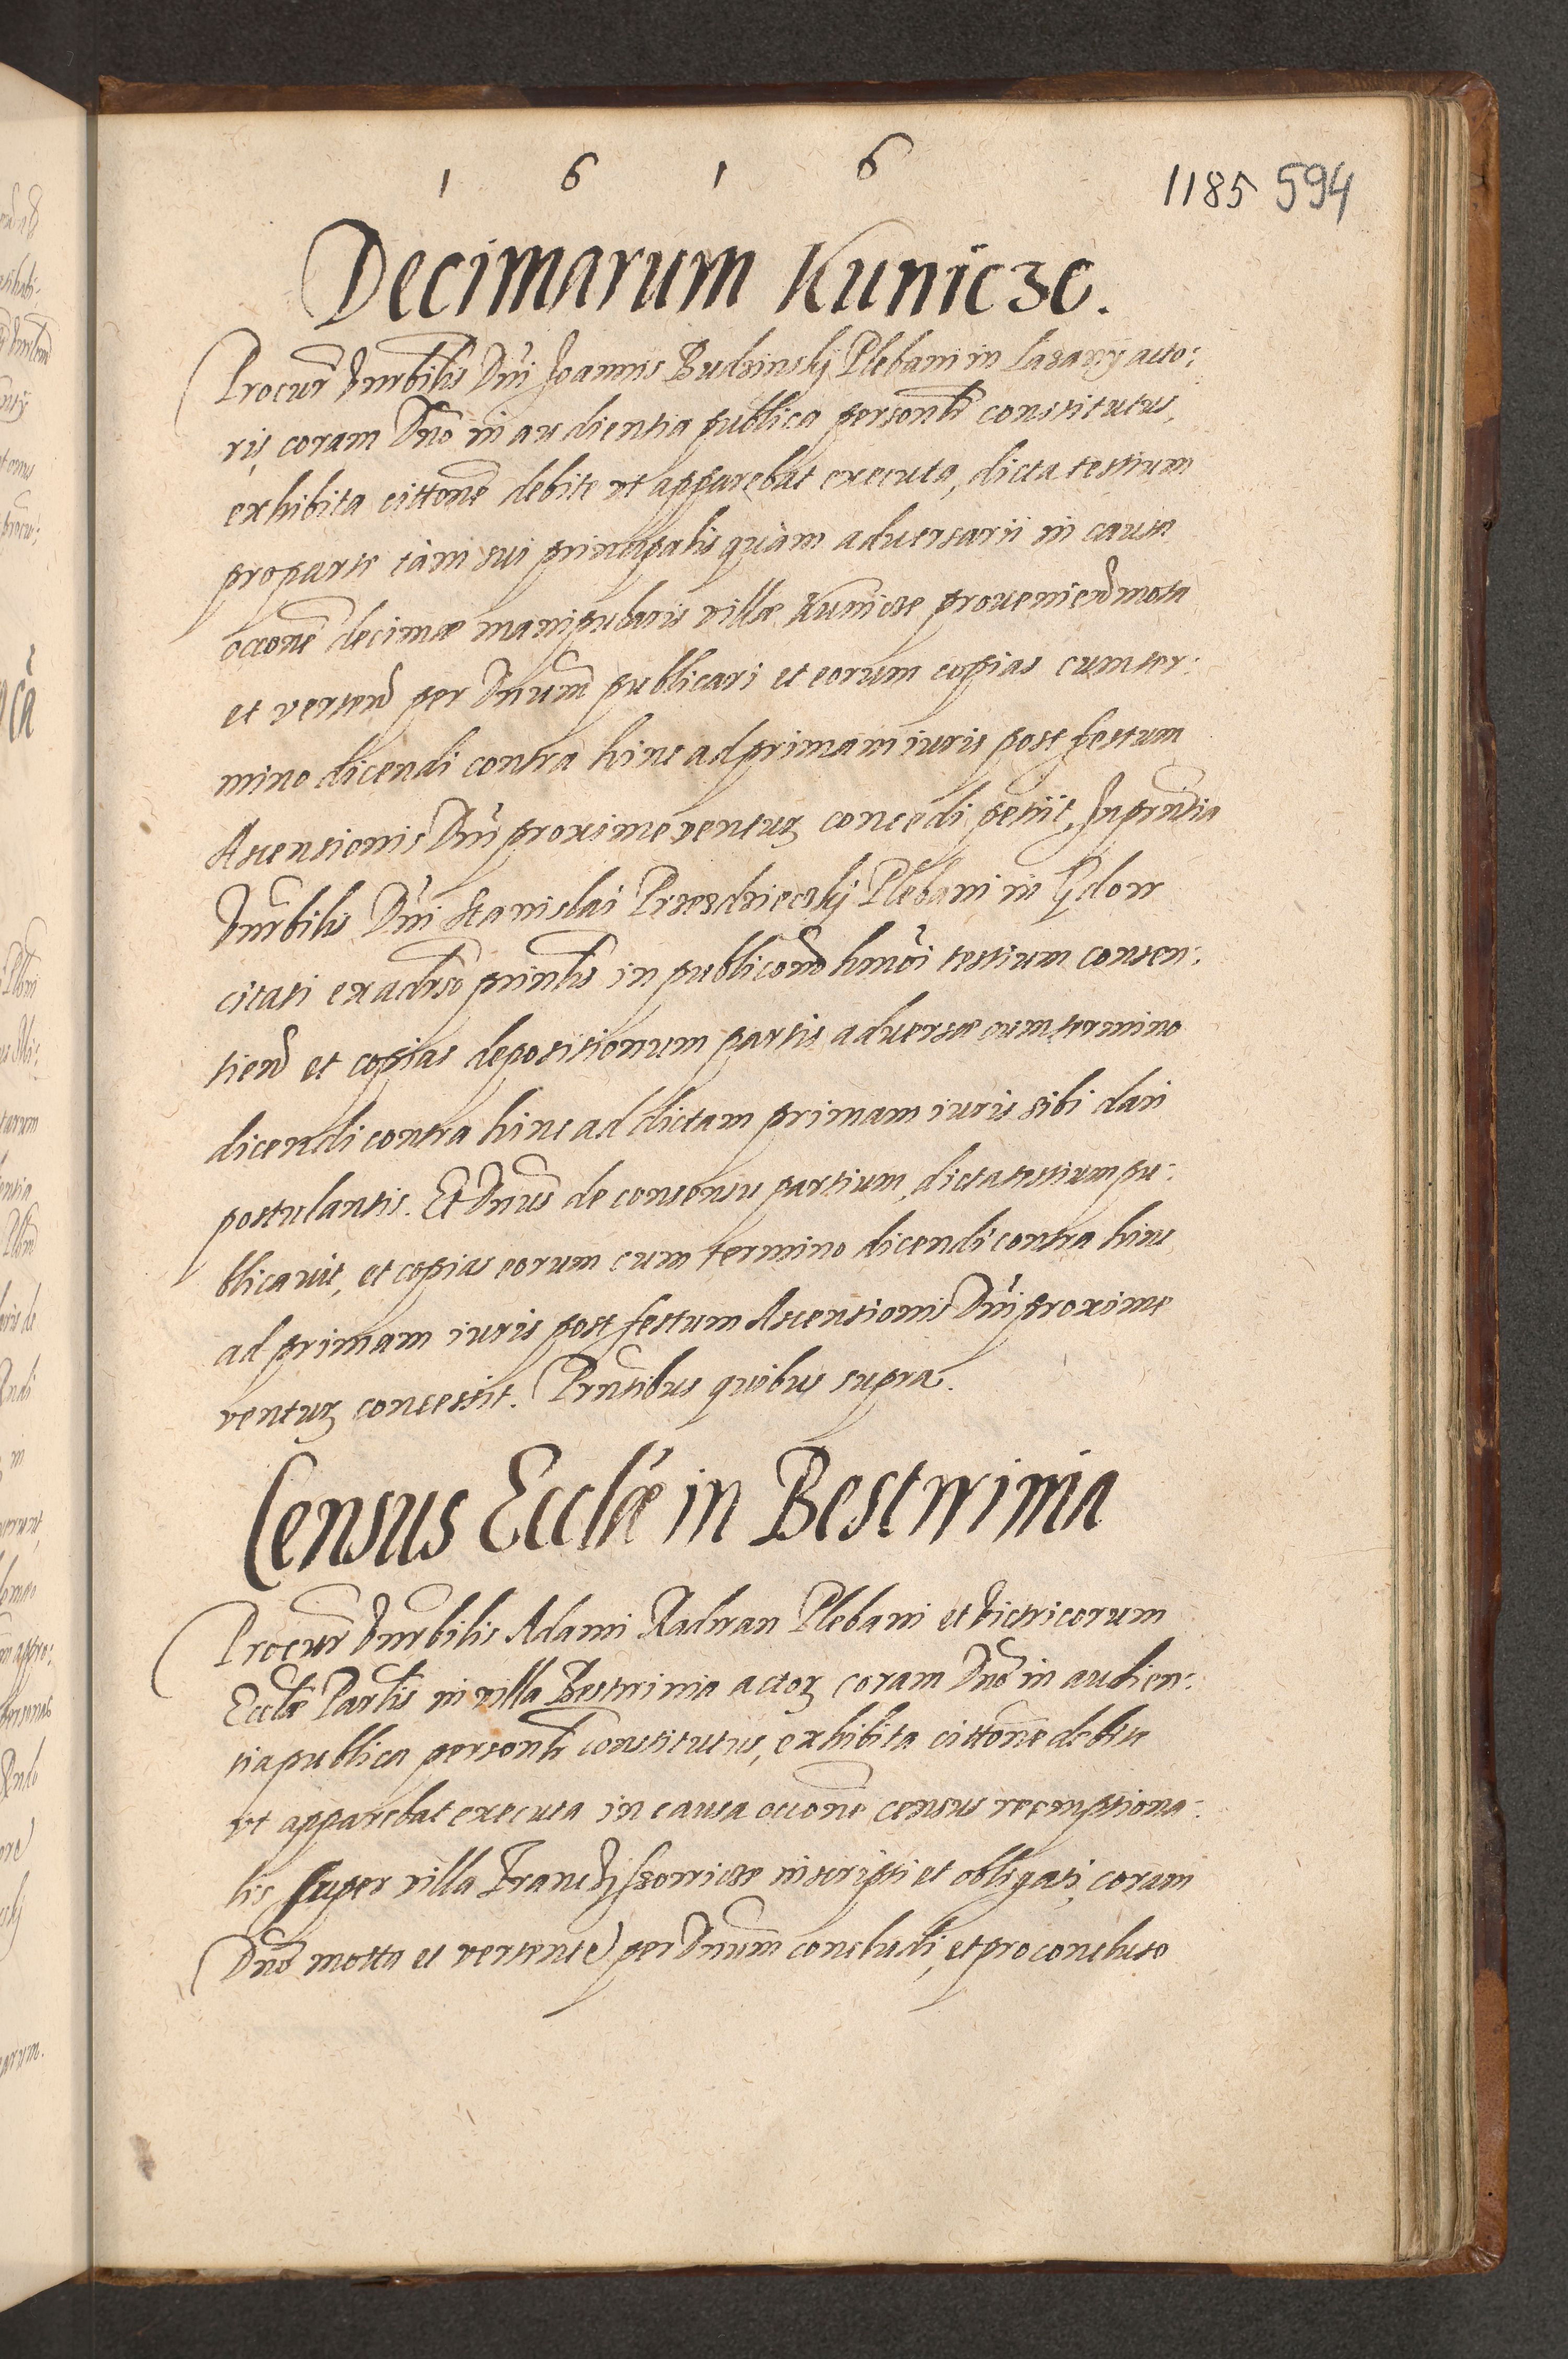 1 6 1 6
1185 594
Decimarum Kunicze.
Procur Vnrbilis Dni Joannis Budzinskij Plebani in Lazanÿ acto:
ris, coram Dno in audientia publica personlr constitutus,
exhibita cittone debite vt apparebat executa, dicta testium
pro parte tàm sui principalis quàm aduersarii in causa
occone decimæ manipularis villæ Kunicze proueniend mota
et verten per Dnum publicari et eorum copias cum ter:
mino dicendi contra hinc ad primam iuris post festum
Ascensionis Dni proxime ventur concedi petiit, In prntia
Vnrbilis Dni Stanislai Przezdzieczkj Plebani in Gdow
citati ex aduerso prinlis in publicaone hmoi testium consen:
tien et copias depositionum partis aduersæ cum termino
dicendi contra hinc ad dictam primam iuris sibi dari
postulantis. Et Dnus de consensu partium dicta testium pu:
blicauit, et copias eorum cum termino dicendi contra hinc
ad primam iuris post festum Ascensionis Dni proxime
ventur concessit. Prntibus quibus supra.
Census Ecclæ in Bestwinia
Procur Vnrbilis Adami Radwan Plebani et Victricorum
Ecclæ Parlis in villa Bestwinia actor coram Dno in audien:
tia publica personlr constitutus, exhibita cittone debite
vt apparebat executa in causa occone census reemptiona:
lis super villa inscripti et obligati, coram
Dno motta et vertente per Dnum concludi, et pro concluso